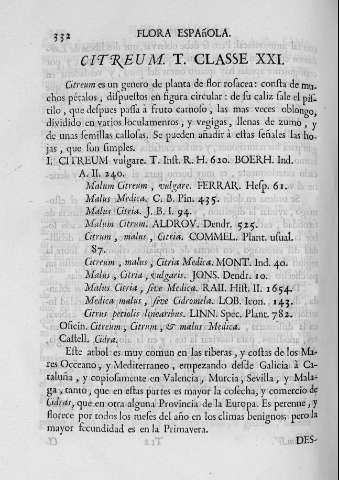 332 FLORA ESPAñOLA.
CITREUM. T. CLASSE XXI.
Citreum es un genero de planta de flor rosacea: consta de mu-
chos pétalos, dispuestos en figura circular: de su caliz sale el pis-
tilo, que despues passa á fruto carnoso, las mas veces oblongo,
dividido en varios loculamentos, y vegigas, llenas de zumo, y
de unas semillas callosas. Se pueden añadir à estas señales las ho-
jas, que son simples.
I. CITREUM vulgare. T. Inst. R. H. 620. BOERH. Ind.
A. II. 240.
Malum Citreum, vulgare. FERRAR. Hesp. 61.
Malus Medica. C. B. Pin. 435.
Malus Citria. J. B. I. 94.
Malum Citrum. ALDROV. Dendr. 525.
Citrum, malus, Citria. COMMEL. Plant. usual.
87.
Citreum, malus, Citria Medica. MONT. Ind. 40.
Malus, Citria, vulgaris. JONS. Dendr. 10.
Malus Citria, sive Medica. RAII. Hist. II. 1654.
Medica malus, sive Cidromela. LOB. Icon. 143.
Citrus petiolis linearibus. LINN. Spec. Plant. 782.
Oficin. Citreum, Citrum, & malus Medica.
Castell. Cidra.
Este arbol es muy comun en las riberas, y costas de los Ma-
res Occeano, y Mediterraneo, empezando desde Galicia à Ca-
taluña, y copiosamente en Valencia, Murcia, Sevilla, y Mala-
ga, tanto, que en estas partes es mayor la cosecha, y comercio de
Cidras, que en otra alguna Provincia de la Europa. Es perenne, y
florece por todos los meses del año en los climas benignos; pero la
mayor fecundidad es en la Primavera.
DES-